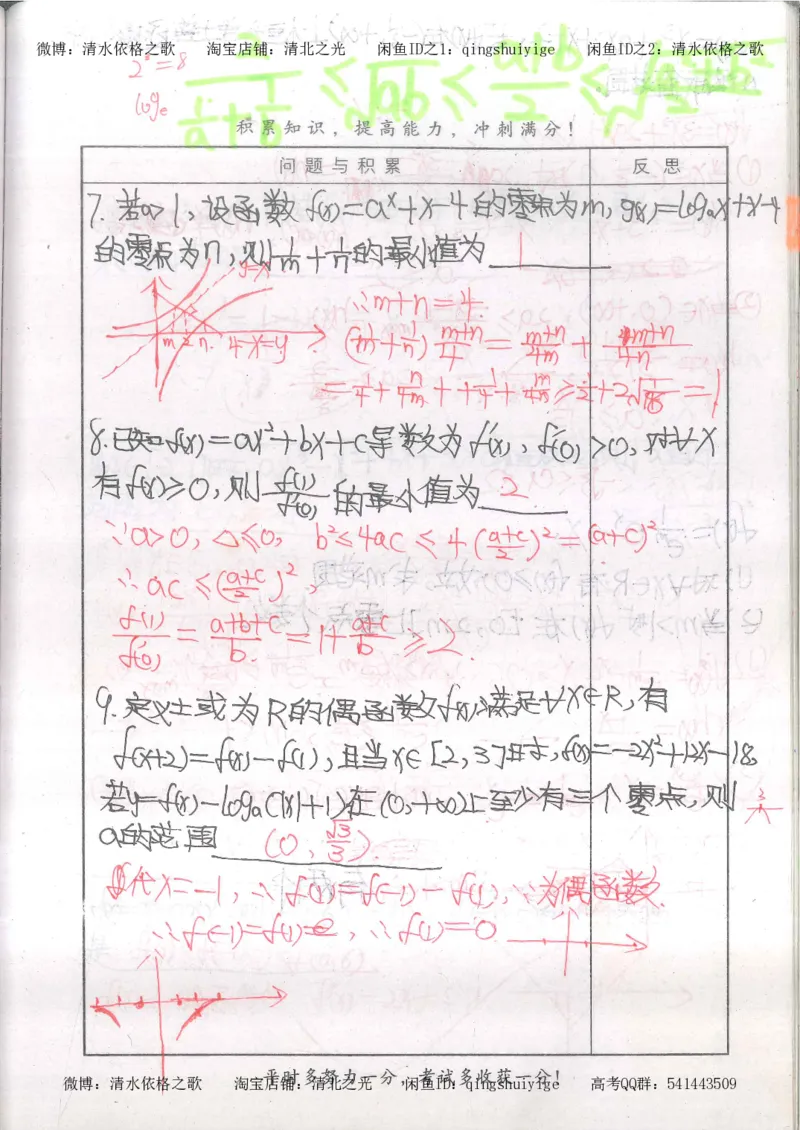 微博：清水依格之歌 淘宝店铺：清北之光 闲鱼ID之1：qingshuiyige 闲鱼ID之2：清水依格之歌
2^x=8
log_e
2/(1/a+1/b) ≤ √ab ≤ (a+b)/2 ≤
积累知识，提高能力，冲刺满分！
问题与积累 反思
7. 若a>1，设函数f(x)=a^x+x-4的零点为m，g(x)=log_a x+x-4
的零点为n，则1/m+1/n的最小值为 1
y=x
∵m+n=4
m 2 n 4-x=y
(1/m+1/n) (m+n)/4 = (m+n)/4m + (m+n)/4n
=1/4+n/4m+1/4+m/4n≥1/2+2√1/16=1
8. 已知f(x)=ax²+bx+c导数为f'(x)，f'(0)>0，对∀x
有f(x)≥0，则f(1)/f'(0)的最小值为 2
∵a>0，△≤0，b²≤4ac≤4((a+c)/2)²=(a+c)²
∴ac≤((a+c)/2)²，
f(1)/f'(0)=(a+b+c)/b=1+(a+c)/b≥2.
9. 定义土或为R的偶函数f(x)满足∀x∈R，有
f(x+2)=f(x)-f(1)，且当x∈[2,3]时，f(x)=-2x²+12x-18，
若y=f(x)-log_a(|x|+1)在(0,+∞)上至少有三个零点，则
a的范围 (0, √3/3)
代x=-1，∴f(1)=f(-1)-f(1)，∵为偶函数
∴f(-1)=f(1)，∴f(1)=0
平时多努力一分，考试多收获一分！
微博：清水依格之歌 淘宝店铺：清北之光 闲鱼ID：qingshuiyige 高考QQ群：541443509